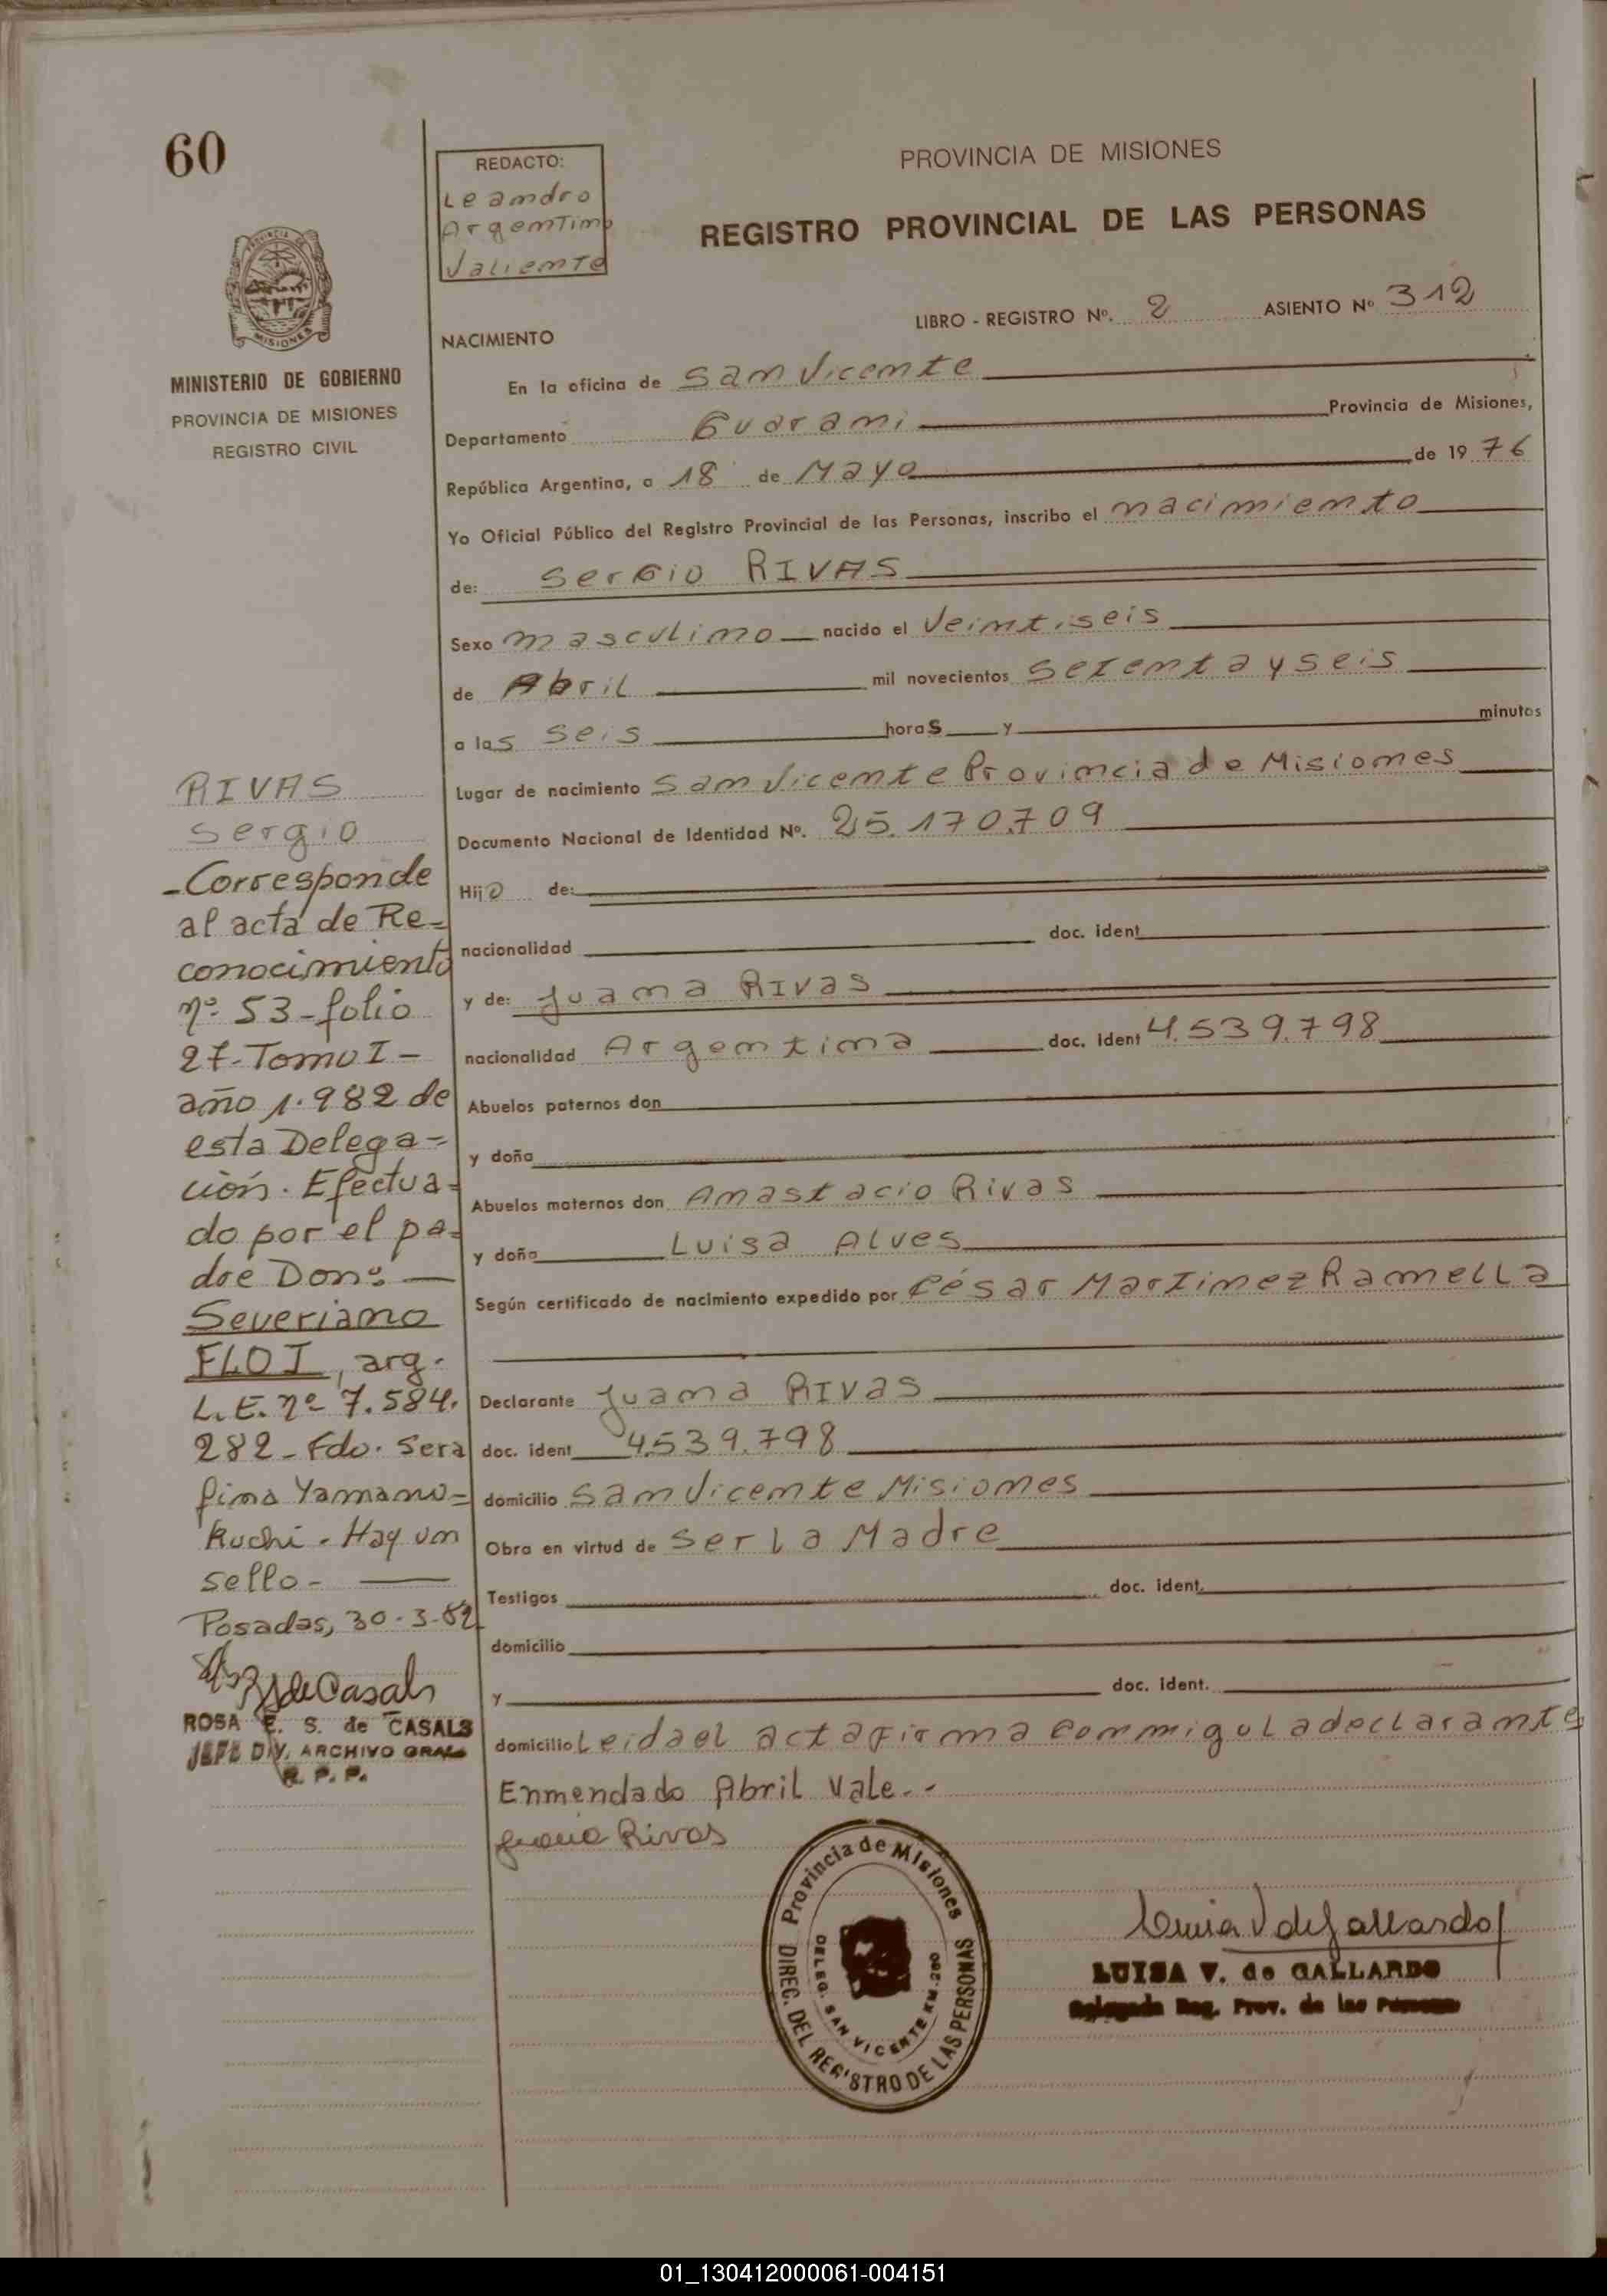 60
REDACTO:
Leandro
Argentino
Valiente
PROVINCIA DE MISIONES
REGISTRO PROVINCIAL DE LAS PERSONAS
PROVINCIA DE
MISIONES
MINISTERIO DE GOBIERNO
PROVINCIA DE MISIONES
REGISTRO CIVIL
LIBRO - REGISTRO Nº. 2 ASIENTO Nº 312
NACIMIENTO
En la oficina de San Vicente
Departamento Guarani Provincia de Misiones,
República Argentina, a 18 de Mayo de 1976
Yo Oficial Público del Registro Provincial de las Personas, inscribo el nacimiento
de: Sergio RIVAS
Sexo masculino nacido el Veintiseis
de Abril mil novecientos Setenta y seis
a las seis horas y minutos
Lugar de nacimiento San Vicente Provincia de Misiones
Documento Nacional de Identidad Nº. 25.170.709
Hijo de:
nacionalidad doc. ident
y de: Juana RIVAS
nacionalidad Argentina doc. ident 4.539.798
Abuelos paternos don
y doña
Abuelos maternos don Anastacio Rivas
y doña Luisa Alves
Según certificado de nacimiento expedido por César Martinez Ramella
Declarante Juana RIVAS
doc. ident 4.539.798
domicilio San Vicente Misiones
Obra en virtud de ser la Madre
Testigos doc. ident.
domicilio
y doc. ident.
domicilio Leida el acta firma conmigo la declarante
Enmendado Abril Vale.-
Juana Rivas
RIVAS
Sergio
-Corresponde
al acta de Re=
conocimiento
nº 53-folio
27-Tomo I-
año 1.982 de
esta Delega=
ción. Efectua=
do por el pa=
dre Don:
Severiano
FLOI, arg.
L.E. nº 7.584.
282-Fdo. Sera
fina Yamano=
Kuchi. Hay un
sello-
Posadas, 30-3-82
ROSA E. S. de CASALS
JEFE DIV. ARCHIVO GRAL
R. P. P.
Provincia de Misiones
DIREC. DEL REGISTRO DE LAS PERSONAS
DELEG. SAN VICENTE KM.-260
Luisa V de Gallardo
LUISA V. de GALLARDO
Delegada Reg. Prov. de las Personas
01_130412000061-004151